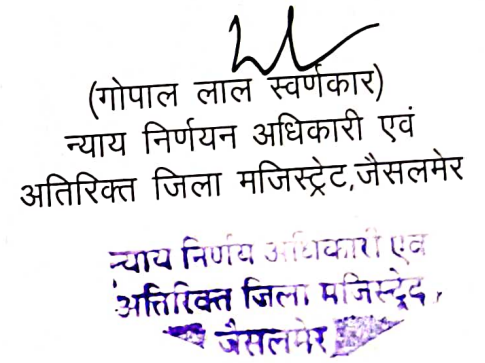 (गोपाल लाल स्वर्णकार)
न्याय निर्णयन अधिकारी एवं
अतिरिक्त जिला मजिस्ट्रेट,जैसलमेर
न्याय निर्णय अधिकारी एवं
अतिरिक्त जिला मजिस्ट्रेट,
जैसलमेर